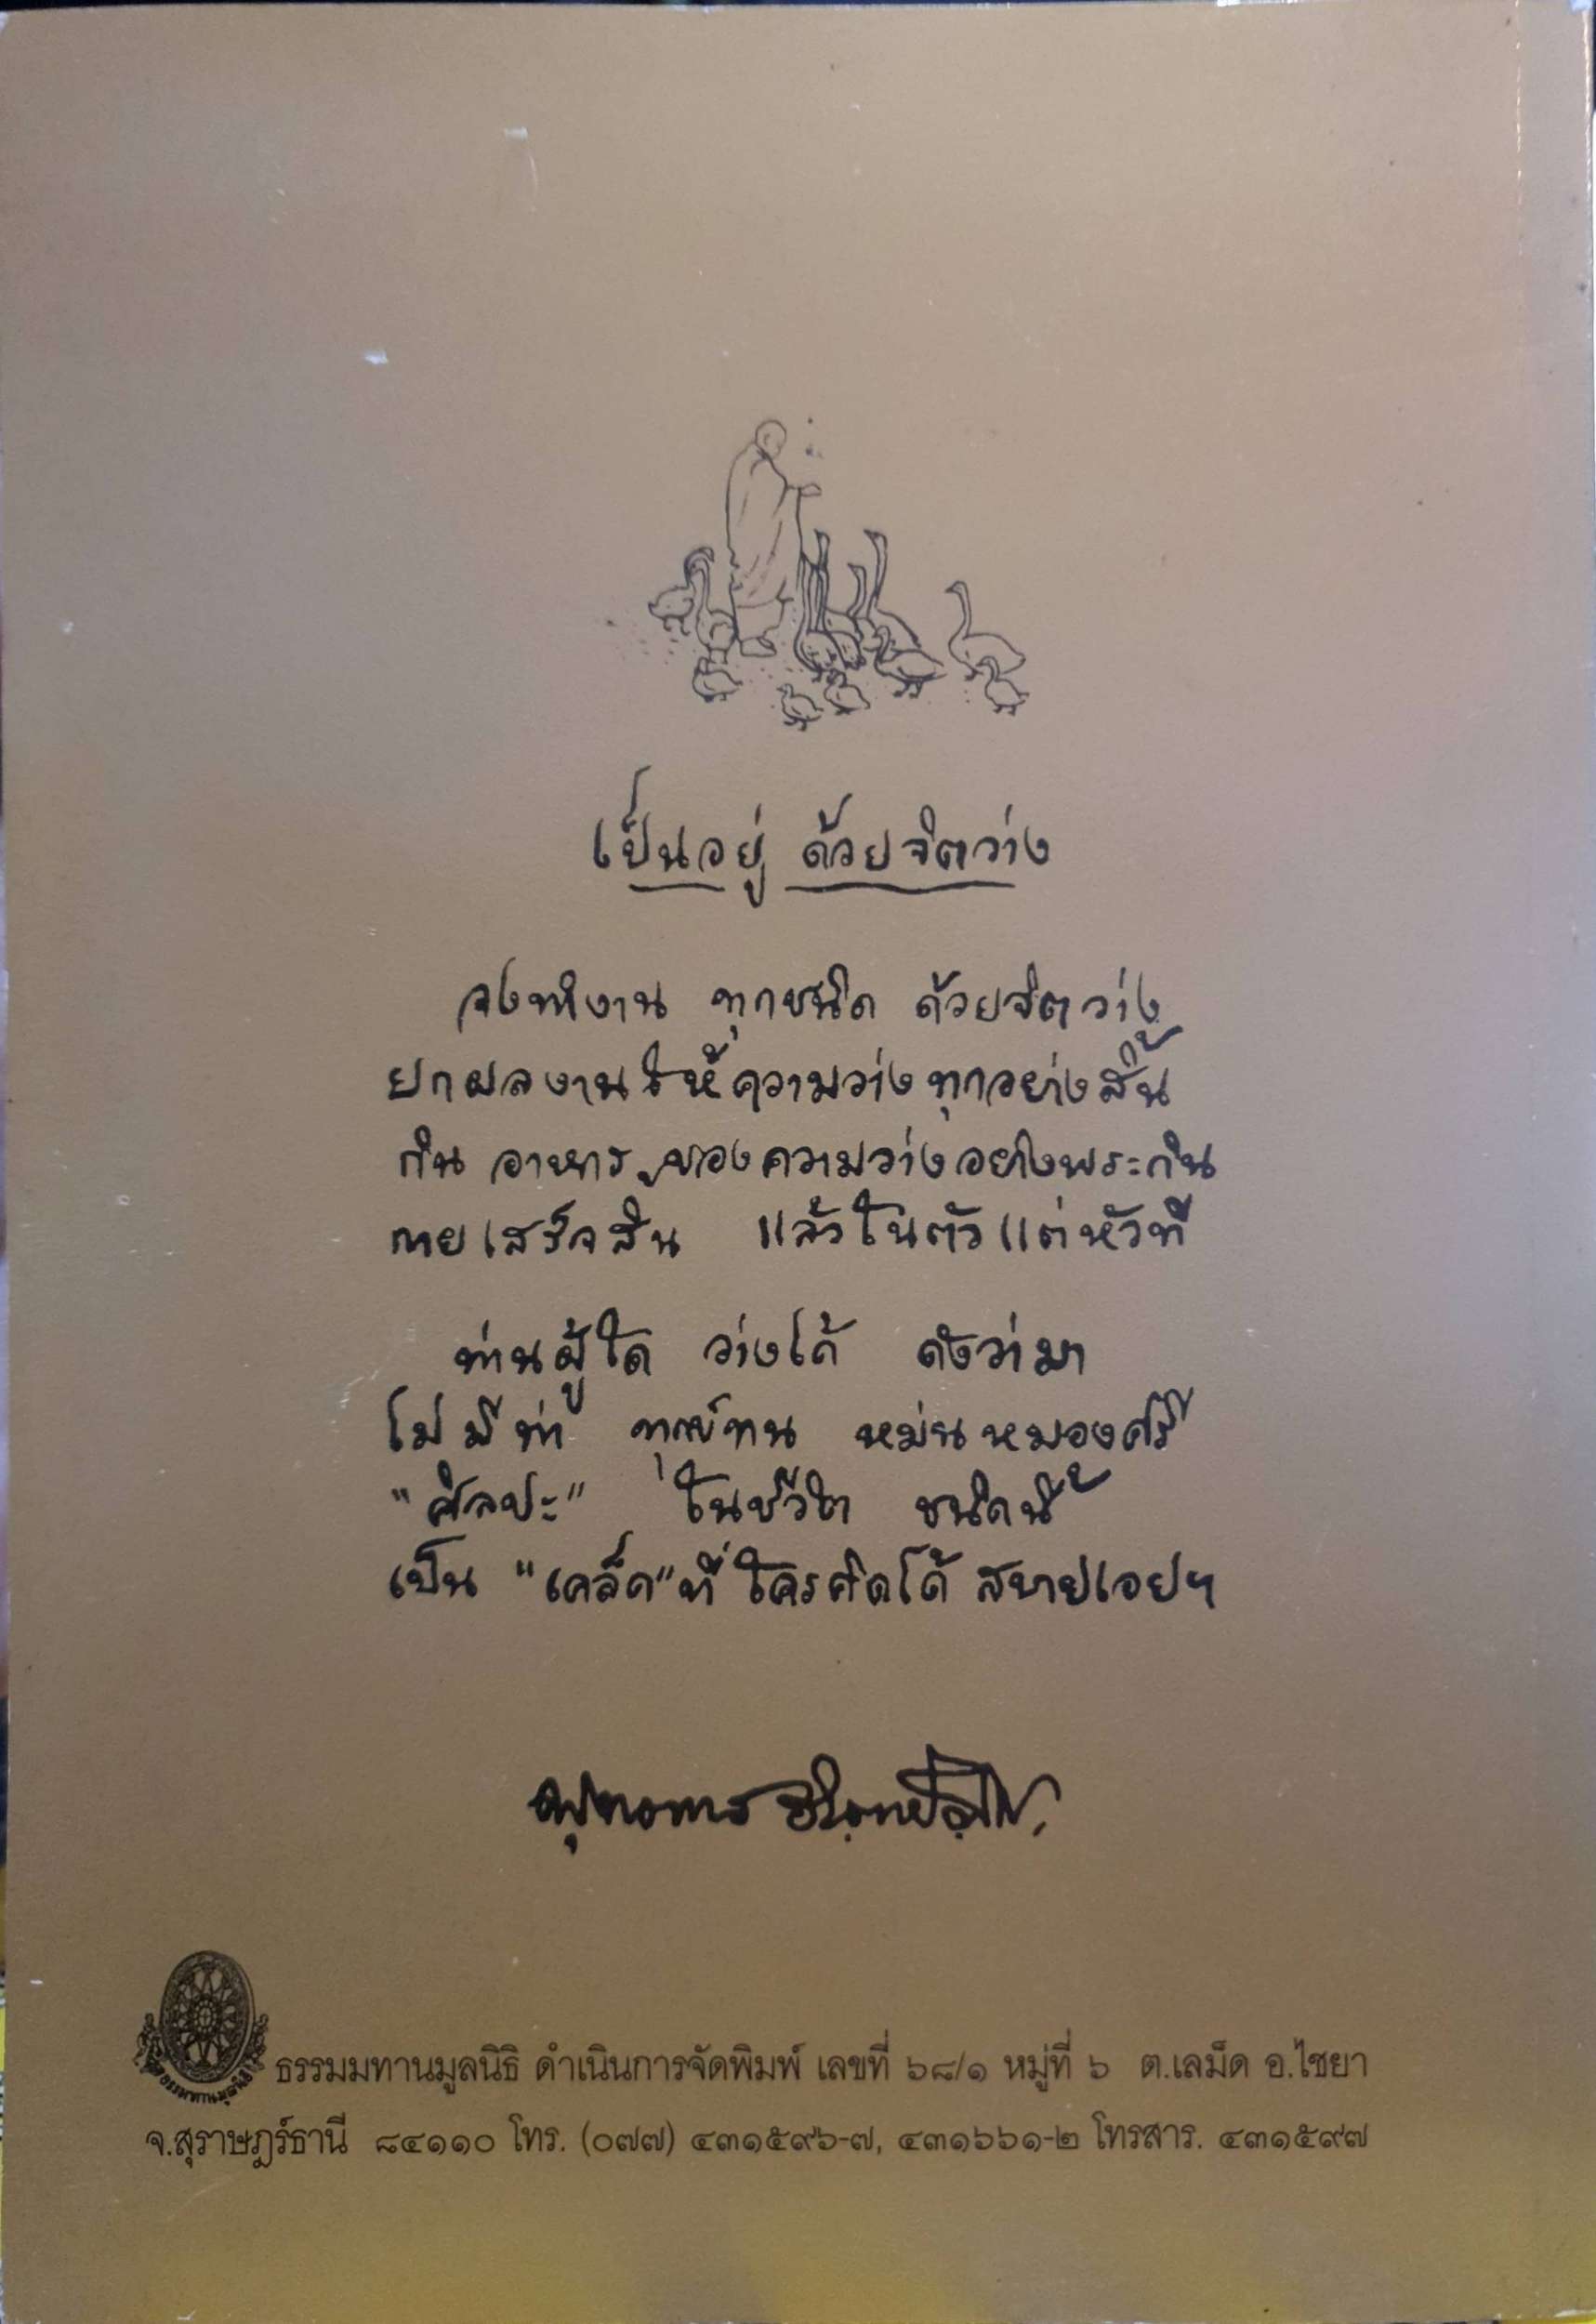 เป็นอยู่ ด้วยจิตว่าง
จงทำงาน ทุกชนิด ด้วยจิตว่าง
ยกผลงานให้ความว่างทุกอย่างสิ้น
กินอาหาร ของความว่างอย่างพระกิน
ตายเสร็จสิ้น แล้วในตัวแต่หัวที
ท่านผู้ใด ว่างได้ ดังว่ามา
ไม่มีท่า ทุกข์ทน หม่นหมองศรี
"ศิลปะ" ในชีวิต ชนิดนี้
เป็น "เคล็ด" ที่ ใครคิดได้ สบายเอยฯ
พุทธทาส อินทปัญโญ
ธรรมทานมูลนิธิ
ธรรมมทานมูลนิธิ ดำเนินการจัดพิมพ์ เลขที่ ๖๘/๑ หมู่ที่ ๖ ต.เลม็ด อ.ไชยา
จ.สุราษฎร์ธานี ๘๔๑๑๐ โทร. (๐๗๗) ๔๓๑๕๙๖-๗, ๔๓๑๖๖๑-๒ โทรสาร. ๔๓๑๕๙๗